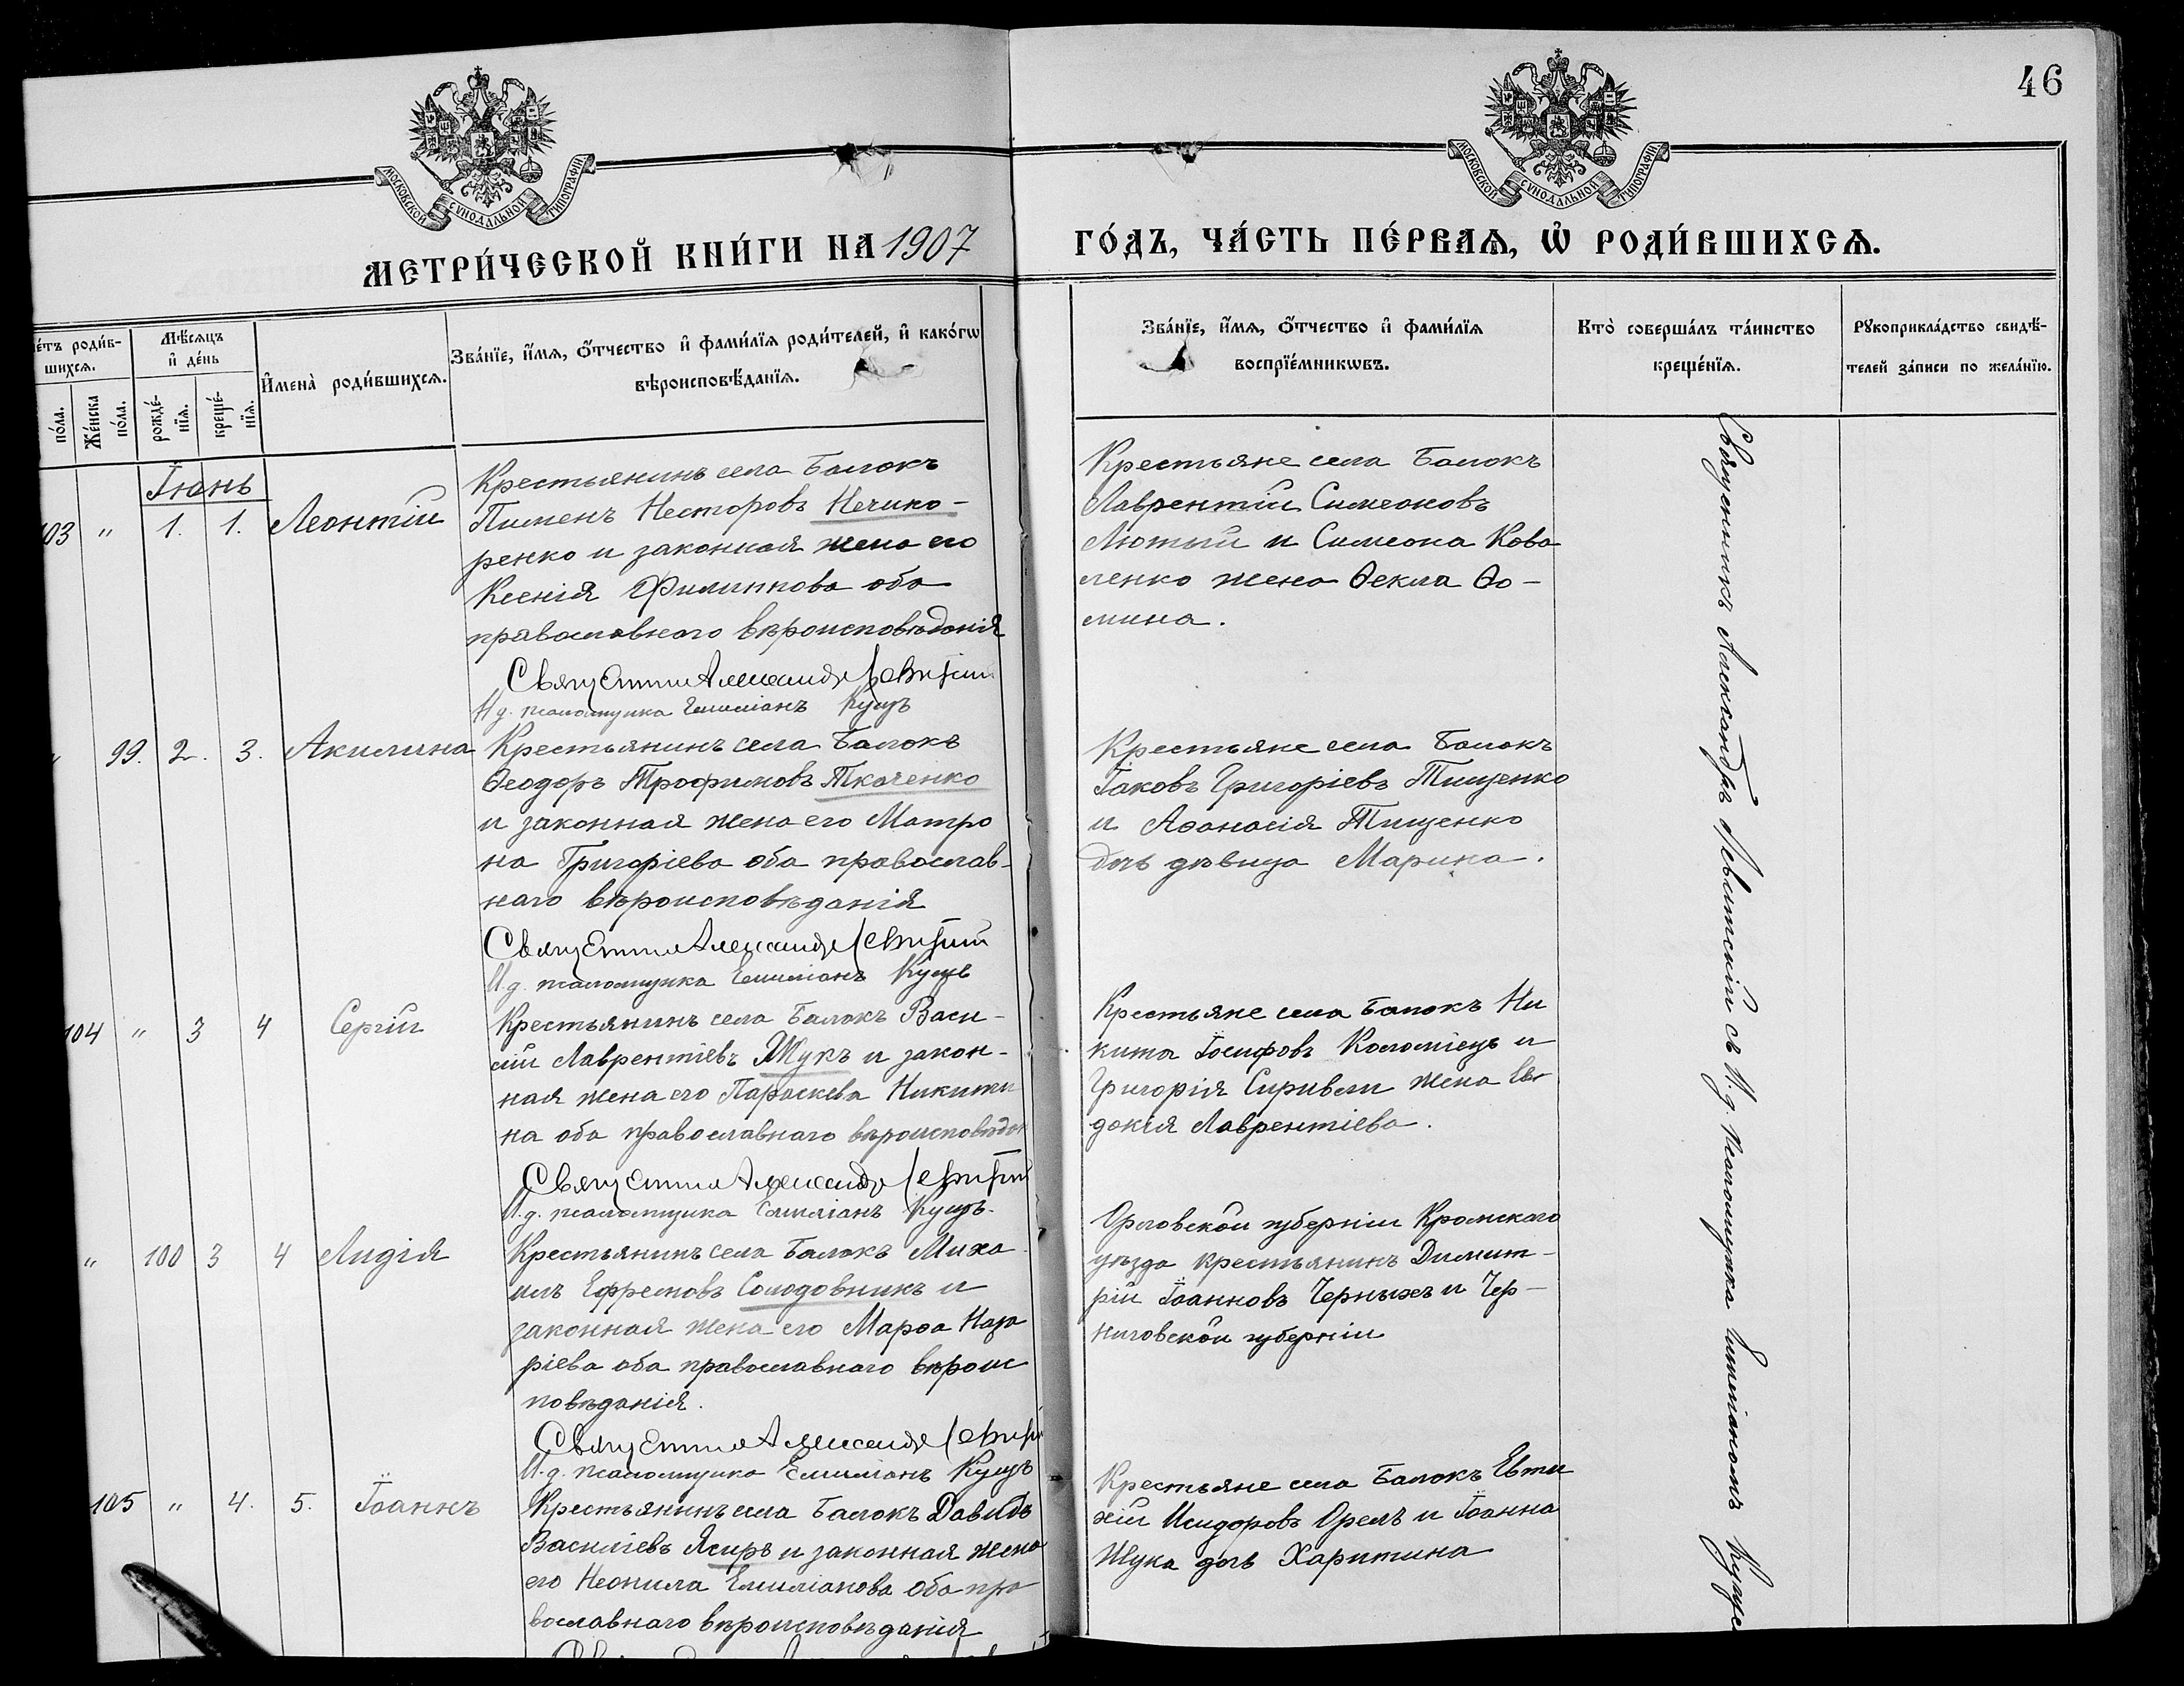 46
МОСКОВСКОЙ СѴНОДАЛЬНОЙ ТИПОГРАФІИ
МОСКОВСКОЙ СѴНОДАЛЬНОЙ ТИПОГРАФІИ
МЕТРИ́ЧЕСКОЙ КНИ́ГИ НА 1907
ГО́ДЪ, ЧА́СТЬ ПЕ́РВАѦ, Ѡ҆ РОДИ́ВШИХСѦ.
е́тъ роди́в-
шихсѧ.
Мѣ́сѧцъ
и҆ де́нь
по́ла.
Же́нска
по́ла.
рожде́-
нїѧ.
креще́-
нїѧ.
И҆мена̀ роди́вшихсѧ.
Зва́нїе, и҆́мѧ, ѻ҆́тчество и҆ фами́лїѧ роди́телей, и҆ како́гѡ
вѣроисповѣ́данїѧ.
Зва́нїе, и҆́мѧ, ѻ҆́тчество и҆ фами́лїѧ
воспрїе́мникѡвъ.
Кто̀ соверша́лъ та́инство
креще́нїѧ.
Рꙋкоприкла́дство свидѣ́-
телей за́писи по жела́нїю.
Іюнь
03 " 1. 1. Леонтій
Крестьянинъ села Балокъ
Пименъ Несторовъ Нечипо-
ренко и законная жена его
Ксенія Филиппова оба
православнаго вѣроисповѣданія
Священникъ Александръ Левитскій
И д. псаломщика Емиліанъ Кущъ
Крестьяне села Балокъ
Лаврентій Симеоновъ
Лютый и Симеона Кова
ленко жена Ѳекла Ѳо-
мина.
" 99. 2. 3. Акилина
Крестьянинъ села Балокъ
Ѳеодоръ Трофимовъ Ткаченко
и законная жена его Матро
на Григоріева оба православ-
наго вѣроисповѣданія
Священникъ Александръ Левитскій
И д. псаломщика Емиліанъ Кущъ
Крестьяне села Балокъ
Іаковъ Григоріевъ Тищенко
и Аѳанасія Тищенко
дочь дѣвица Марина.
104 " 3 4 Сергій
Крестьянинъ села Балокъ Васи-
лій Лаврентіевъ Жукъ и закон-
ная жена его Параскева Никити
на оба православнаго вѣроисповѣдан
Священникъ Александръ Левитскій
И.д. псаломщика Емиліанъ Кущъ.
Крестьяне села Балокъ Ни
кита Іосифовъ Коломіецъ и
Григорія жена Ев
докія Лаврентіева.
" 100 3 4 Лидія
Крестьянинъ села Балокъ Миха
илъ Ефремовъ Солодовникъ и
законная жена его Марѳа Наза
ріева оба православнаго вѣроис
повѣданія.
Священникъ Александръ Левитскій
И.д. псаломщика Емиліанъ Кущъ
Орловской губерніи Кромскаго
уѣзда крестьянинъ Димит-
рій Іоанновъ Черныхъ и Чер-
ниговской губерніи
105 " 4. 5. Іоаннъ
Крестьянинъ села Балокъ Давидъ
Василіевъ Ясиръ и законная жена
его Неонила Емиліанова оба пра
вославнаго вѣроисповѣданія
Крестьяне села Балокъ Евти
хій Исидоровъ Орелъ и Іоанна
Жука дочь Харитина
Священникъ Александръ Левитскій съ И.д. псаломщика Емиліаномъ Куще